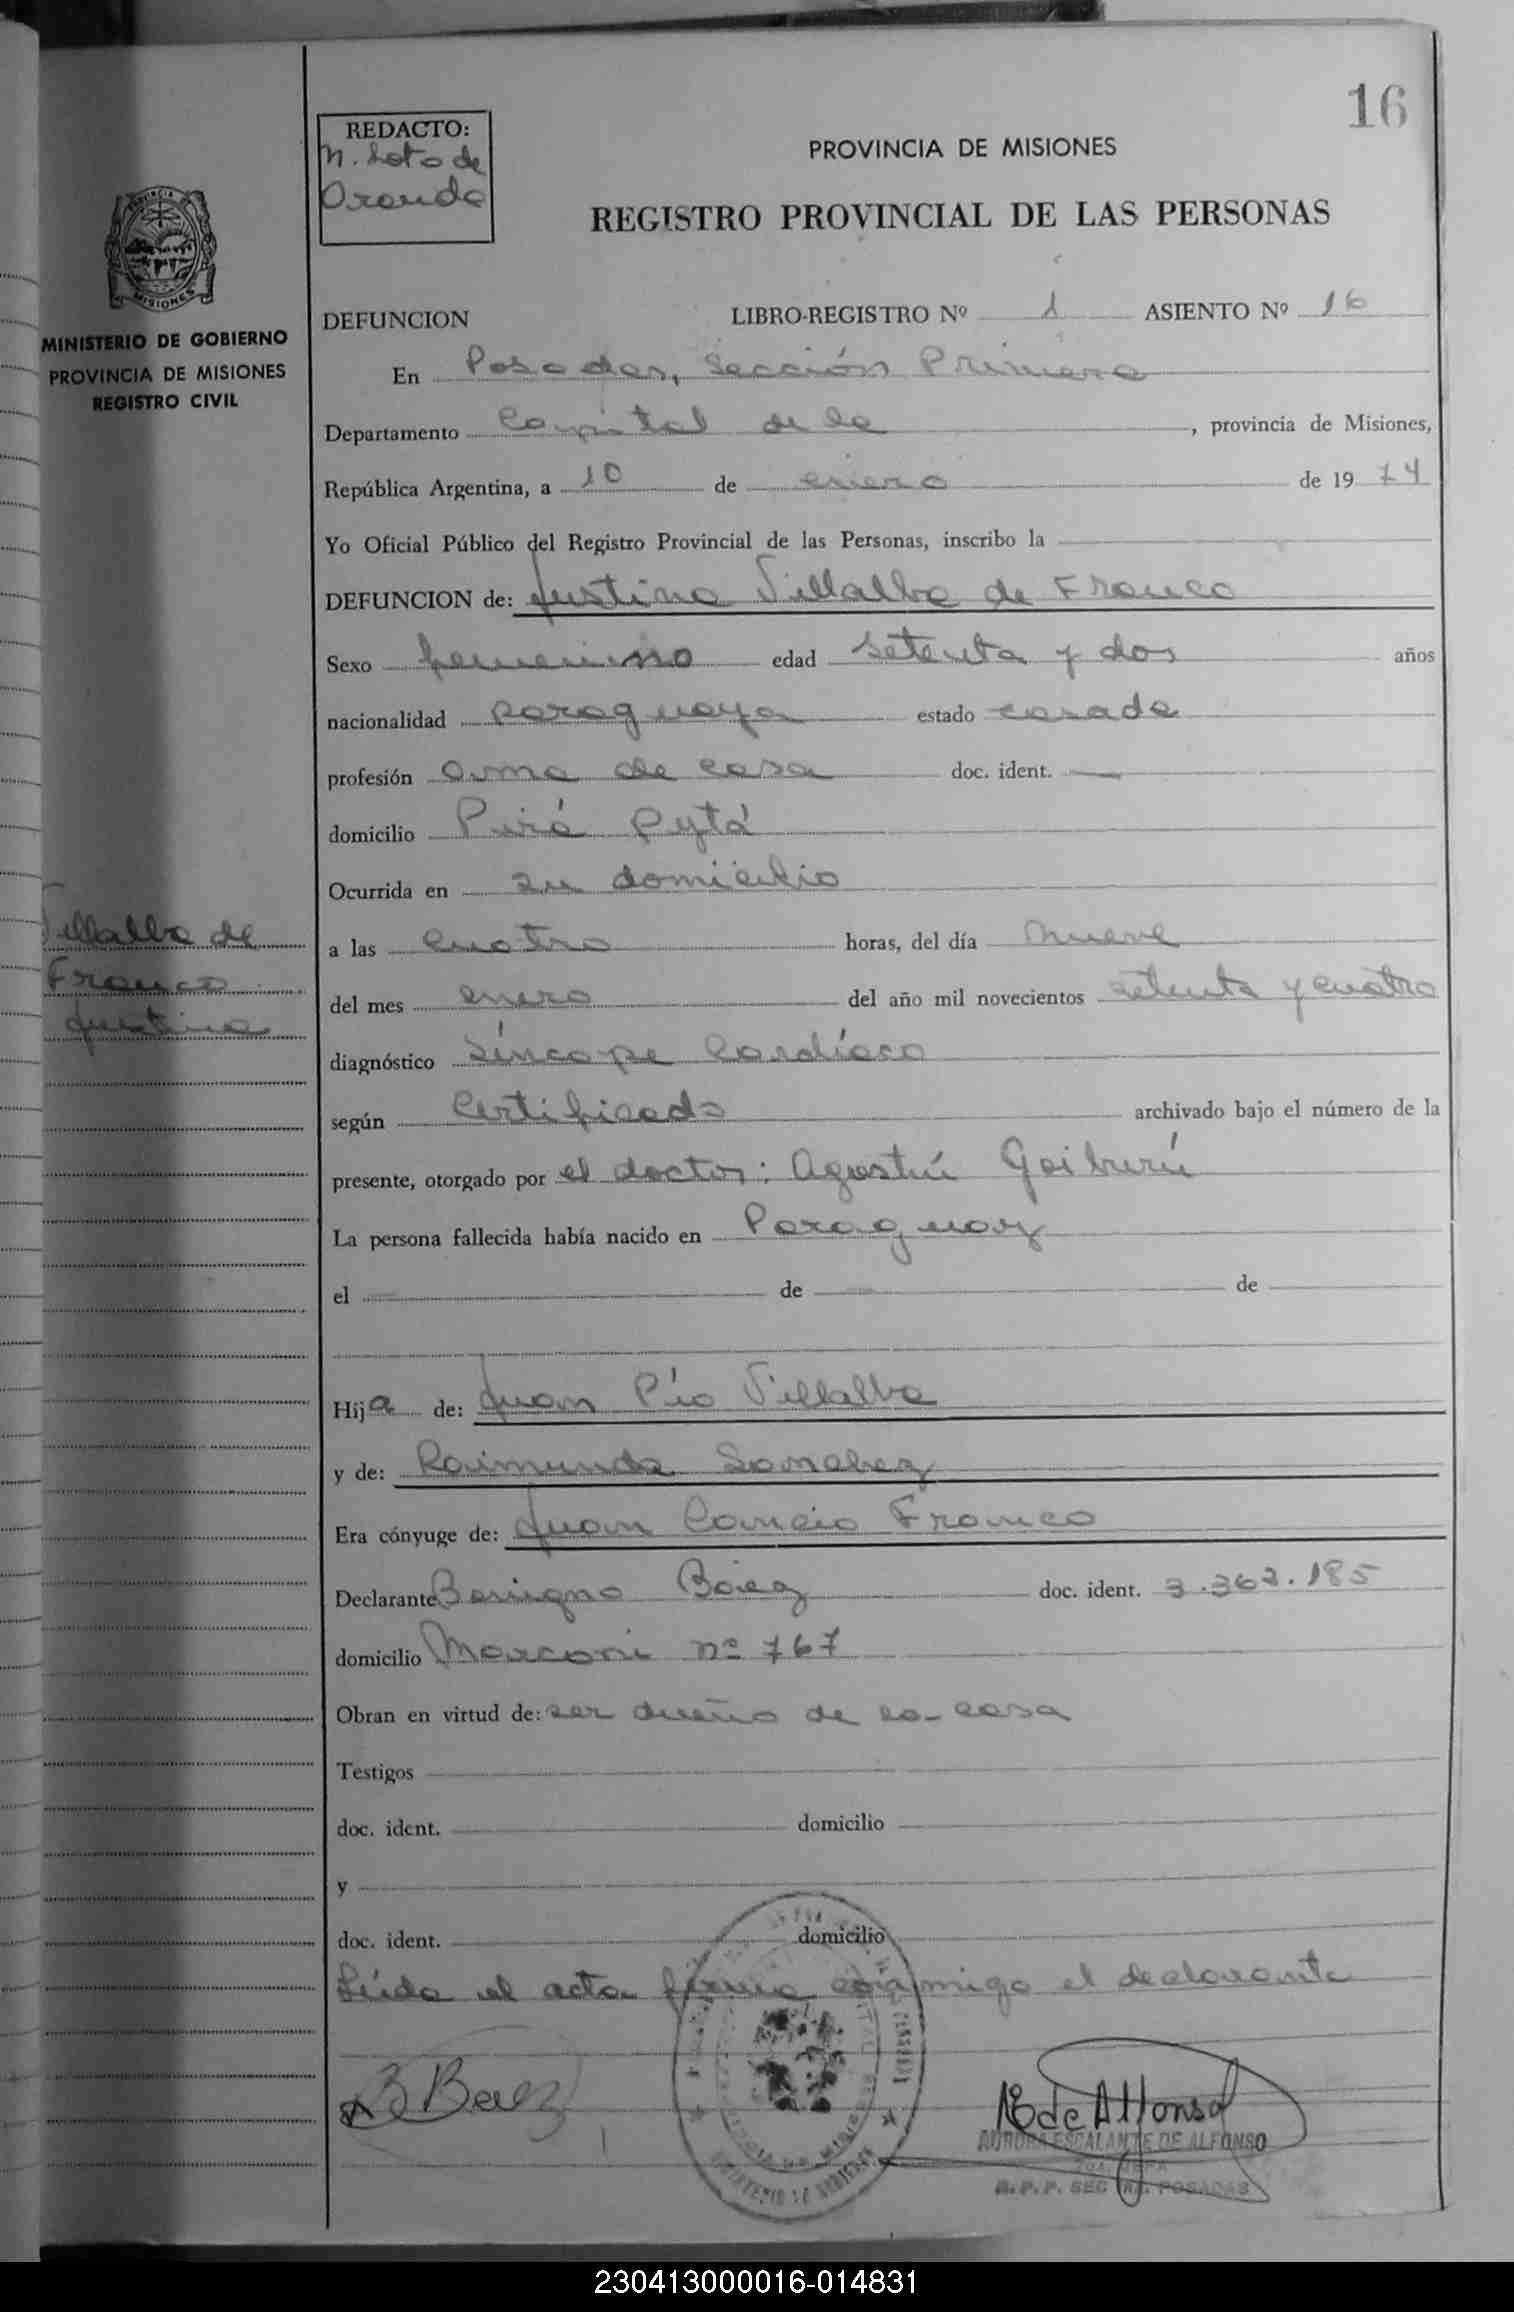 16
REDACTO:
N. Soto de
Aranda
PROVINCIA DE MISIONES
REGISTRO PROVINCIAL DE LAS PERSONAS
PROVINCIA
MISIONES
MINISTERIO DE GOBIERNO
PROVINCIA DE MISIONES
REGISTRO CIVIL
DEFUNCION LIBRO-REGISTRO Nº 1 ASIENTO Nº 16
En Posadas, Sección Primera
Departamento Capital de la, provincia de Misiones,
República Argentina, a 10 de enero de 1974
Yo Oficial Público del Registro Provincial de las Personas, inscribo la
DEFUNCION de: Justina Villalba de Franco
Sexo femenino edad setenta y dos años
nacionalidad paraguaya estado casada
profesión ama de casa doc. ident. —
domicilio Pirá Pytá
Ocurrida en su domicilio
Villalba de
Franco
Justina
a las cuatro horas, del día nueve
del mes enero del año mil novecientos setenta y cuatro
diagnóstico Síncope Cardíaco
según Certificado archivado bajo el número de la
presente, otorgado por el doctor: Agustín Goiburú
La persona fallecida había nacido en Paraguay
el de de
Hija de: Juan Pío Villalba
y de: Raimunda Sanchez
Era cónyuge de: Juan Cancio Franco
Declarante Benigno Báez doc. ident. 3.362.185
domicilio Marconi nº 767
Obran en virtud de: ser dueño de la casa
Testigos
doc. ident. domicilio
y
doc. ident. domicilio
Leída el acta firma conmigo el declarante
B Baez
AE de Alfonso
AURORA ESCALANTE DE ALFONSO
R.P.P. SEC 1RA. POSADAS
230413000016-014831